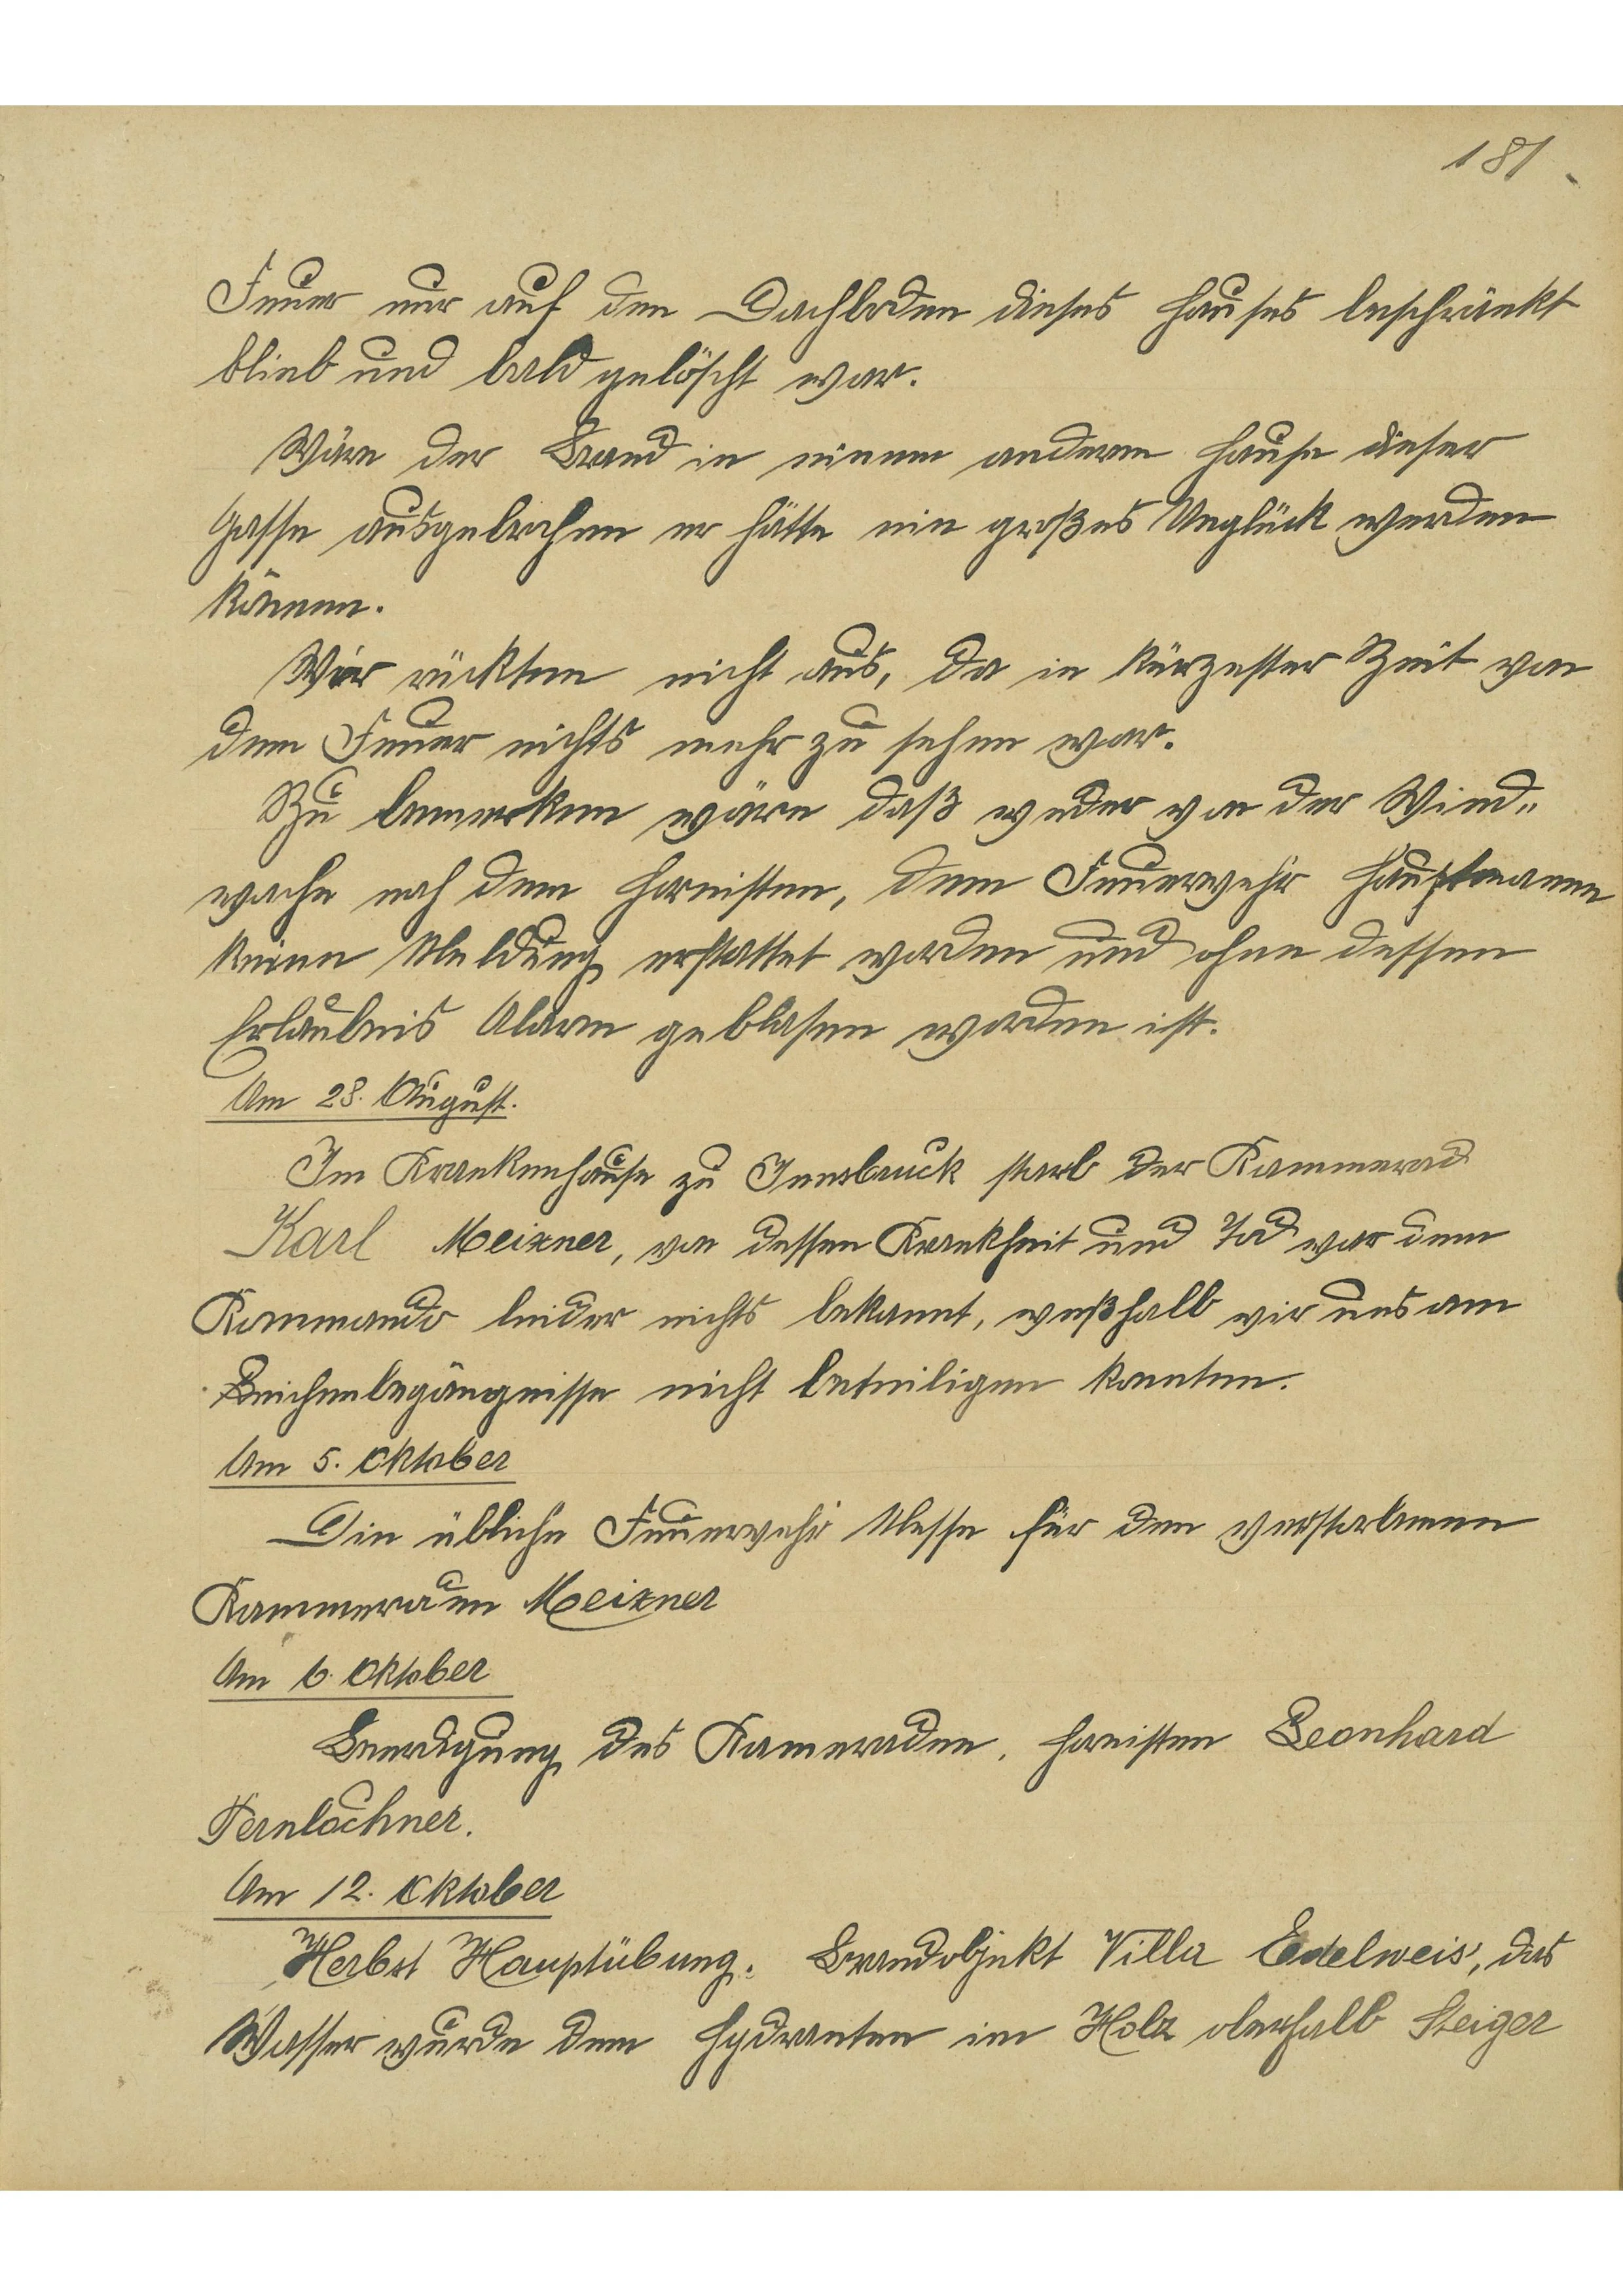 181
Feuer nur auf den Dachboden dieses Hauses beschränkt
blieb und bald gelöscht war.
Wäre der Brand in einem anderen Hause dieser
Gasse ausgebrochen er hätte ein großes Unglück werden
können.
Wir rückten nicht aus, da in kürzester Zeit von
dem Feuer nichts mehr zu sehen war.
Zu bemerken wäre daß weder von der Wind„
wache noch dem Hornisten, dem Feuerwehr Hauptmann
keine Meldung erstattet worden und ohne dessen
Erlaubnis Alarm geblasen worden ist.
Am 28. August.
Im Krankenhause zu Innsbruck starb der Kammerad
Karl Meixner, von dessen Krankheit und Tod war dem
Kommando leider nichts bekannt, weßhalb wir uns am
Leichenbegängnisse nicht beteiligen konnten.
Am 5. Oktober
Die übliche Feuerwehr Messe für den verstorbenen
Kammeraden Meixner
Am 6. Oktober
Beerdigung des Kameraden, Hornisten Leonhard
Fernlochner.
Am 12. Oktober
Herbst Hauptübung. Brandobjekt Villa Edelweis', das
Wasser wurde dem Hydranten im Holz oberhalb Steiger